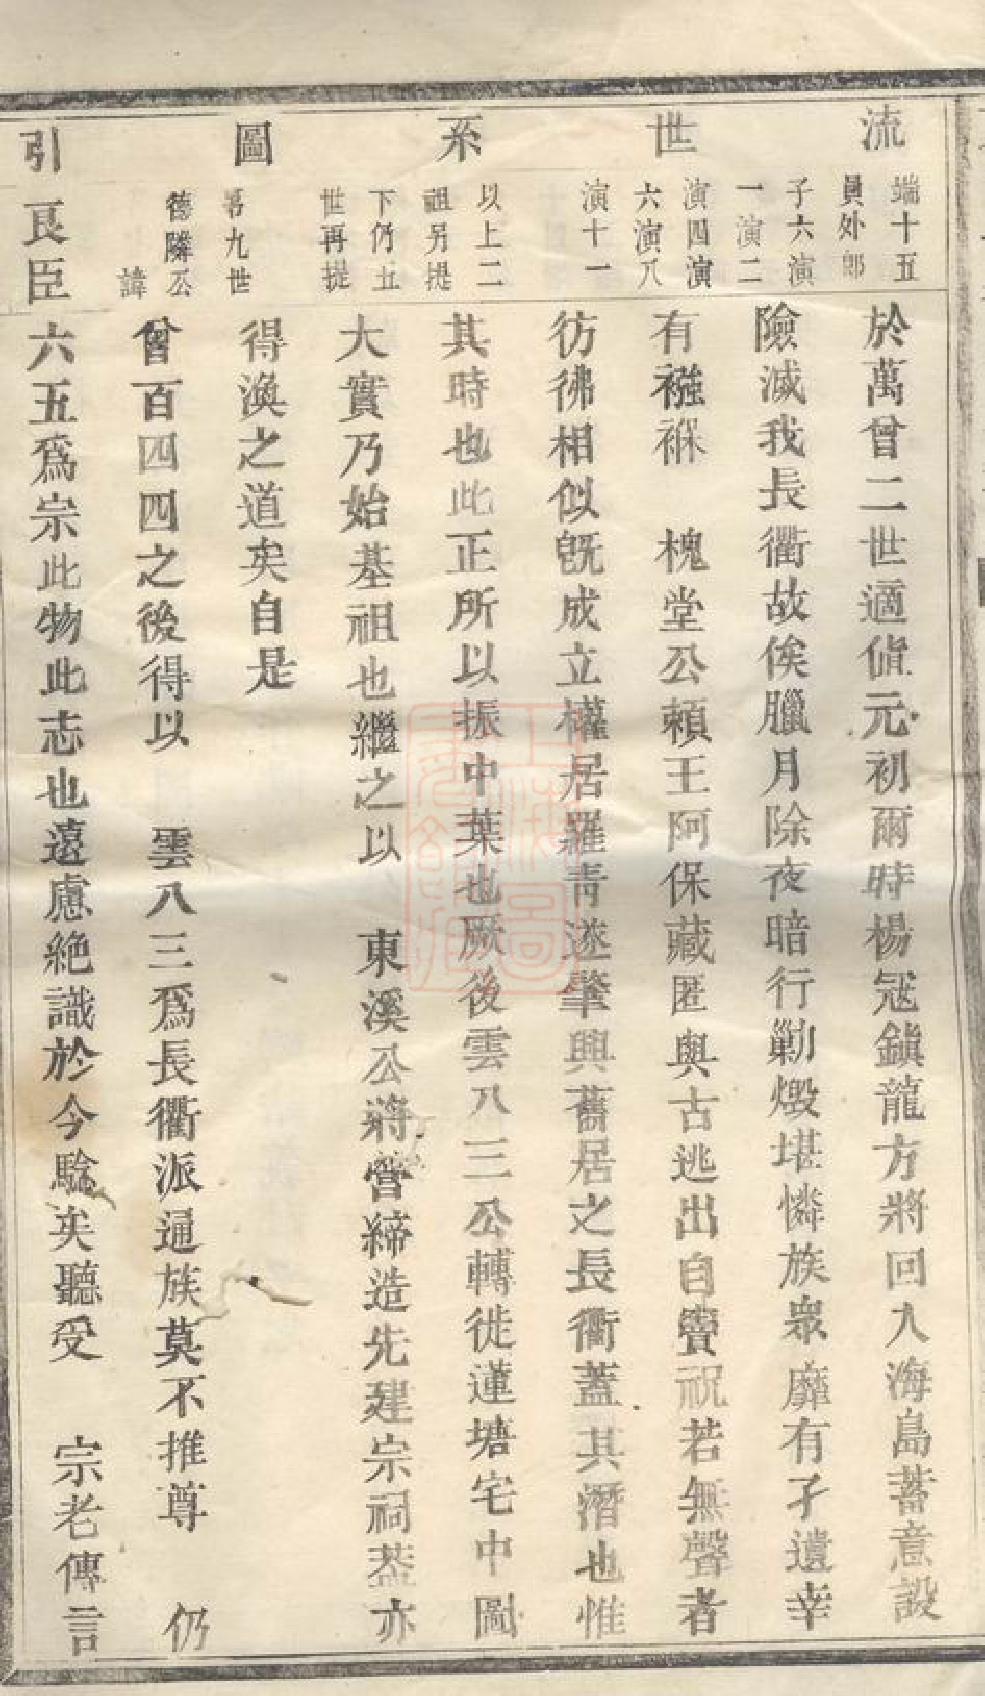 流世系圖引
端十五
員外郎
子六演
一演二
演四演
六演八
演十一
以上二
祖另提
下仍五
世再提
畧九世
德隣公
諱
良臣
於萬曾二世適値元初爾時楊冦鎮龍方將回入海島蓄意設
險滅我長衢故俟臘月除夜暗行勦燬堪憐族衆靡有孑遺幸
有襁褓 槐堂公頼王阿保藏匿與古逃出自竇祝若無聲者
彷彿相似旣成立權居羅青遂肇興舊居之長衢蓋其潛也惟
其時也此正所以振中葉也厥後雲八三公轉徙蓮塘宅中圖
大實乃始基祖也繼之以 東溪公將營締造先建宗祠葢亦
得渙之道矣自是
曾百四四之後得以 雲八三爲長衢派通族莫不推尊 仍
六五爲宗此物此志也遠慮絶識於今騐矣聽受 宗老傳言